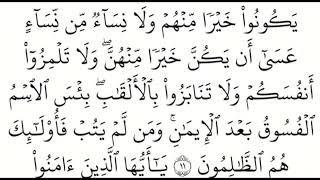 يَكُونُوا۟ خَيْرًۭا مِّنْهُمْ وَلَا نِسَآءٌۭ مِّن نِّسَآءٍ
عَسَىٰٓ أَن يَكُنَّ خَيْرًۭا مِّنْهُنَّ ۖ وَلَا تَلْمِزُوٓا۟
أَنفُسَكُمْ وَلَا تَنَابَزُوا۟ بِٱلْأَلْقَـٰبِ ۖ بِئْسَ ٱلِٱسْمُ
ٱلْفُسُوقُ بَعْدَ ٱلْإِيمَـٰنِ ۚ وَمَن لَّمْ يَتُبْ فَأُو۟لَـٰٓئِكَ
هُمُ ٱلظَّـٰلِمُونَ ١١ يَـٰٓأَيُّهَا ٱلَّذِينَ ءَامَنُوا۟